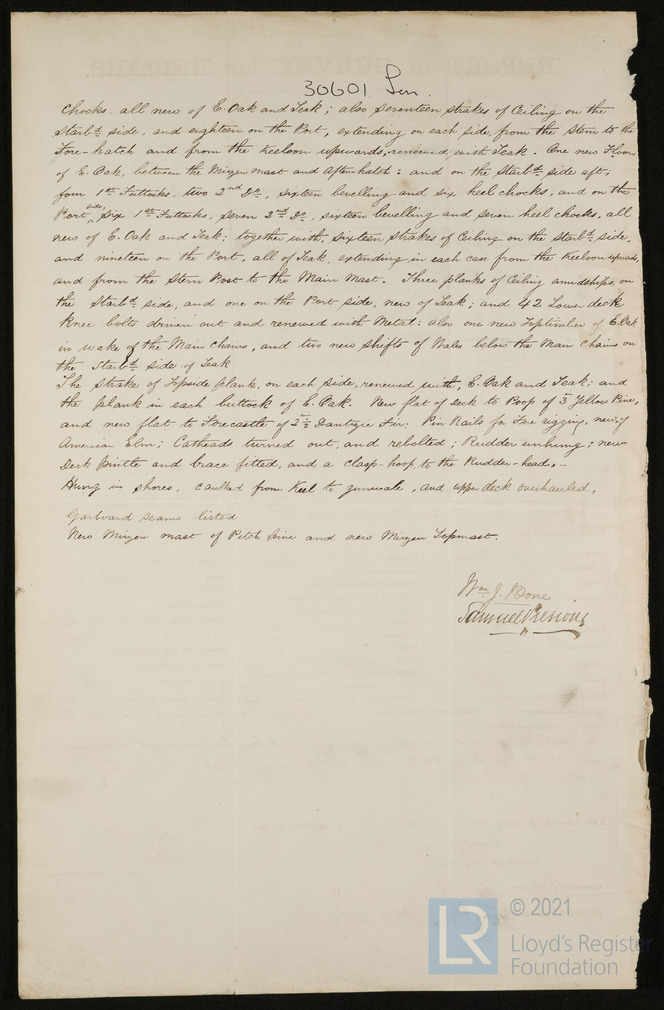 30601 Lon.
Chocks, all new of E. Oak and Teak; also seventeen strakes of Ceiling on the
Starbd side, and eighteen on the Port, extending on each side, from the Stem to the
Fore-hatch and from the Keelson upwards, renewed with Teak. One new Floor
of E. Oak, between the Mizen mast and After-hatch: and on the Starbd side aft,
four 1st Futtocks, two 2nd Do, sixteen bevelling and six heel chocks, and on the
Port side, six 1st Futtocks, seven 2nd Do, sixteen bevelling and seven heel chocks, all
new of E. Oak and Teak; together with, Sixteen strakes of Ceiling on the Starbd side,
and nineteen on the Port, all of Teak, extending in each case from the Keelson upwards,
and from the Stern Post to the Main Mast. Three planks of Ceiling amidships, on
the Starbd side, and one on the Port side, new of Teak; and 42 Lower deck
Knee bolts driven out and renewed with Metal: also one new Toptimber of E. Oak
in wake of the Main Chains, and two new shifts of Wales below the Main Chains on
the Starbd side of Teak
The Strake of Topside plank, on each side, renewed with, E. Oak and Teak; and
the plank in each buttock of E. Oak. New flat of deck to Poop of 3 Yellow Pine,
and new flat to Forecastle of 2½ Dantzic Fir: Pin Rails for Fore rigging, new of
American Elm; Catheads turned out, and rebolted; Rudder unhung; new
Deck pintle and brace fitted, and a clasp-hoop to the Rudder-head.-
Hung in shores, caulked from Keel to gunwale, and upper deck overhauled.
Garboard seams listed
New Mizen mast of Pitch Pine and new Mizen Topmast.
Wm J. Bone
Samuel
© 2021
LR
Lloyd's Register
Foundation